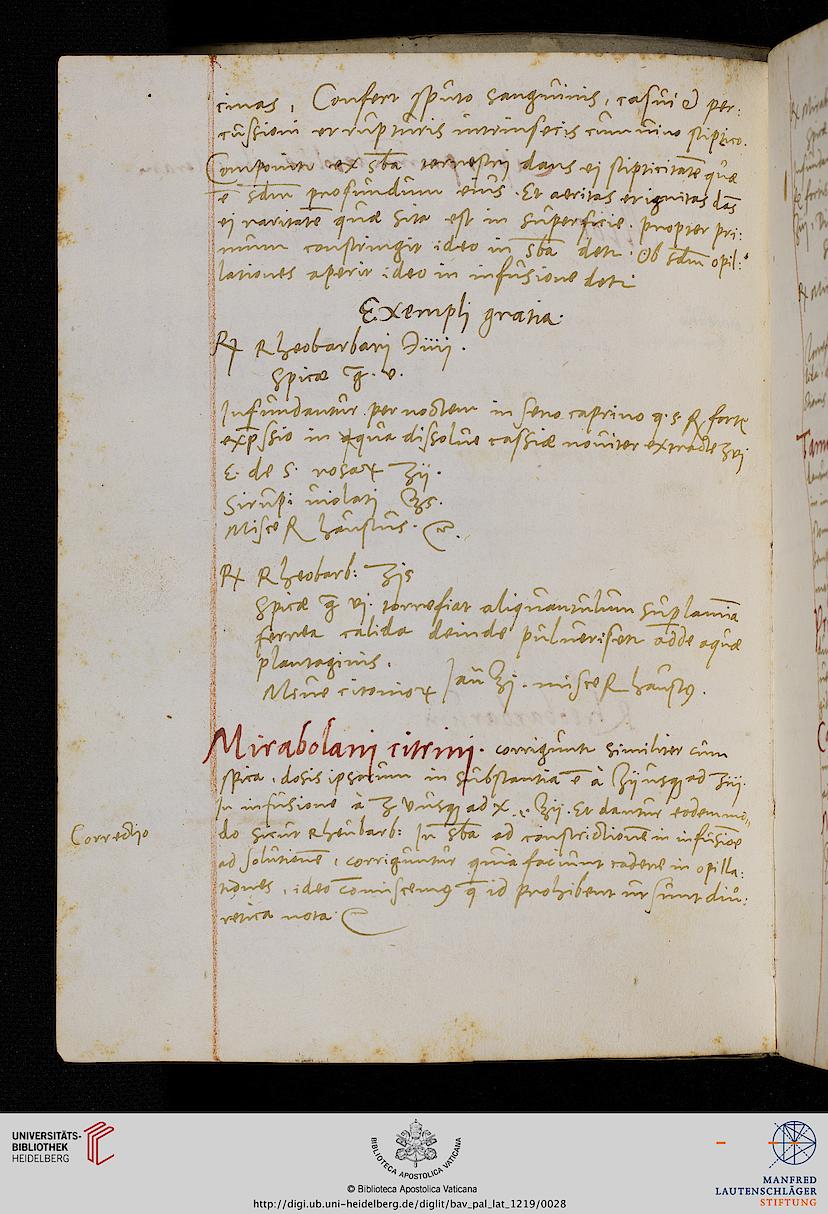 cinas, Confert sputo sanguinis, casui & per:
cussioni et rupturis intrinsecis cum vino stiptico.
Componitr ex sba terrestri dans ei stipticitatē quæ
ē sdm profundum eius. Et aeritas et ignitas dās
ei raritatē quæ sita est in superficie. propter pri:
mum constringit ideo in sba detr. Ob sdm opil:
lationes aperit ideo in infusione detr
Exempli gratia.
℞ Rheobarbari ℈iiii.
Spicæ g̅. v.
Infundantur per noctem in sero caprino q. s. ℞ forti
exp̄ssio in qua dissolve cassiæ noviter extractæ ʒvj
E. de s. rosaꝝ ʒij.
Sirupi violati ℥s.
Misce ℞ haustus.
℞ Rheobarb: ʒis
Spicæ g̅ vj. torrefiat aliquantulum sup lamīa
ferrea calida deinde pulverisetr adde aquæ
plantaginis.
Mivæ citonioꝝ | aū ℥j. misce ℞ haustꝰ.
Mirabolani citrini. corriguntr similiter cum
spica, dosis ipsorum in substantia ē à ʒij usqꝫ ad ʒiij.
In infusione à ʒ v usqꝫ ad x. ʒij. Et dantur eodem mo,,
do sicut Rheubarb: In sba ad constrictionē in infusiōe
Correctio
ad solutionē, corriguntur quia faciunt cadere in opilla:
tiones, ideo comiscemꝰ q̄ id prohibent ut sunt diu:
retica nota.
UNIVERSITÄTS-
BIBLIOTHEK
HEIDELBERG
BIBLIOTECA APOSTOLICA VATICANA
© Biblioteca Apostolica Vaticana
http://digi.ub.uni-heidelberg.de/diglit/bav_pal_lat_1219/0028
MANFRED
LAUTENSCHLÄGER
STIFTUNG